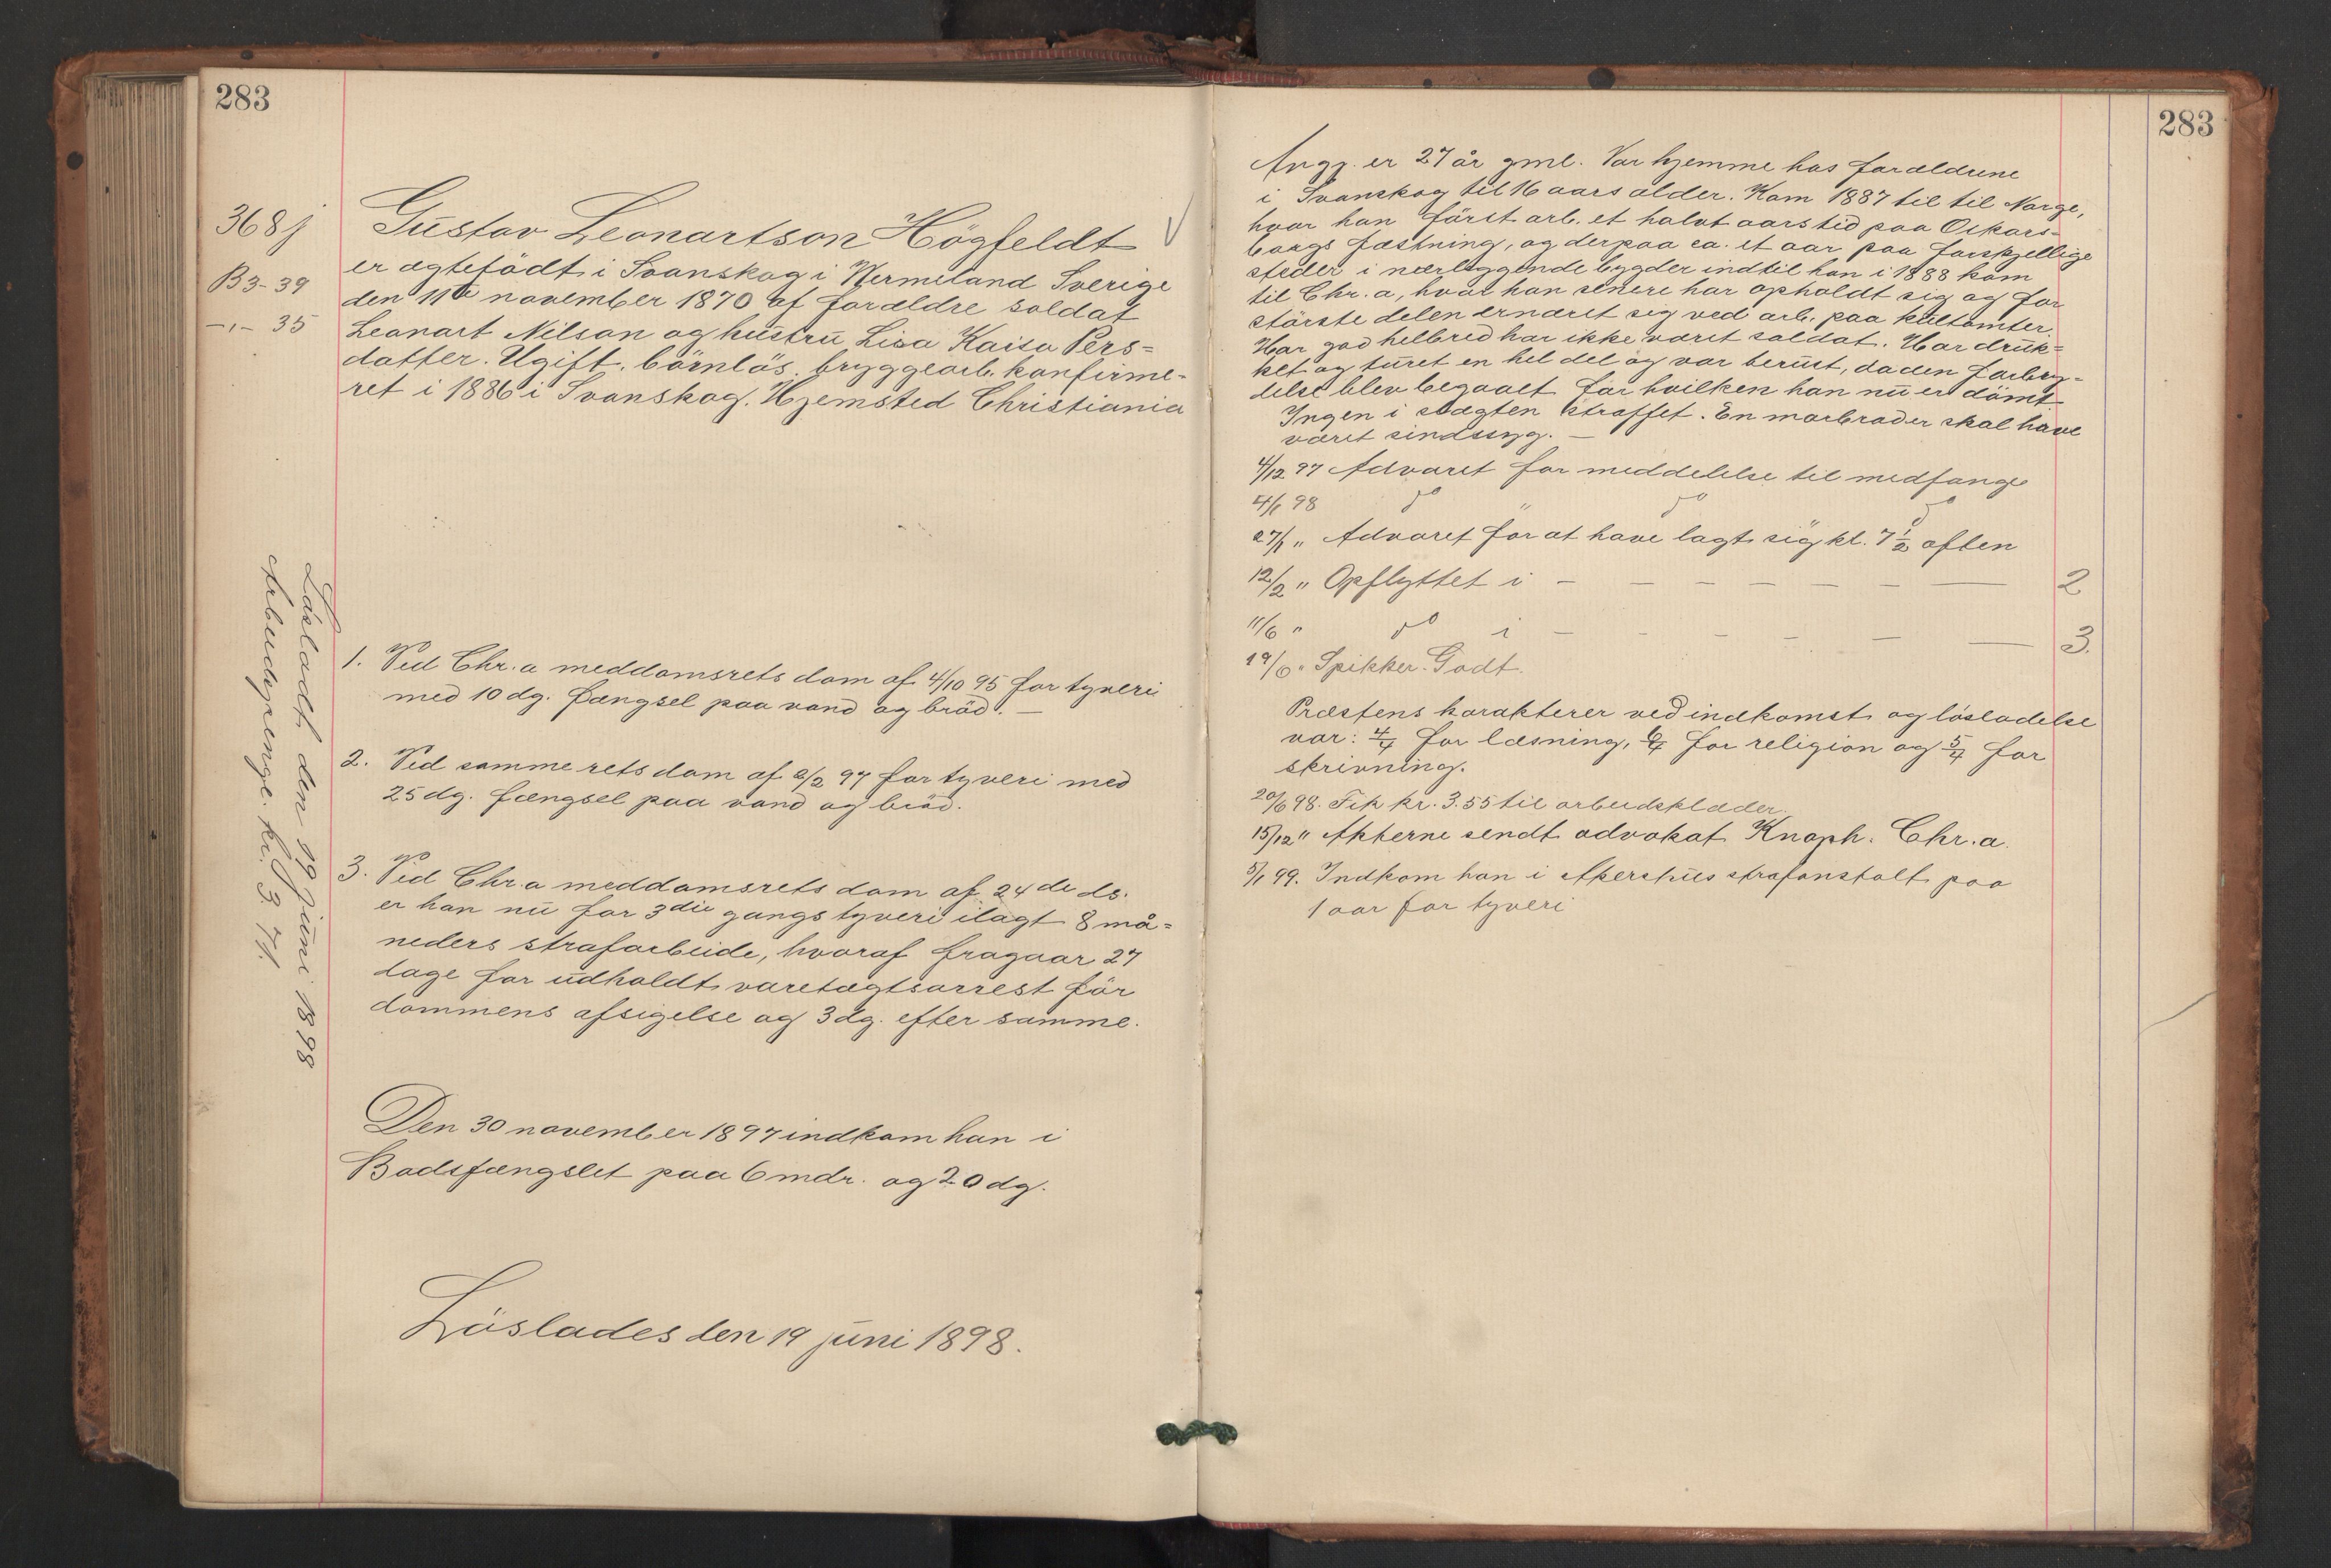 283
368 j
B3-39
-"- 35
Gustav Leonartson Högfeldt
er ægtefödt i Svanskog i Wermeland Sverige
den 11te november 1870 af forældre soldat
Leonart Nilson og hustru Lisa Kaisa Pers=
datter. Ugift, börnlös, bryggearb. konfirme-
ret i 1886 i Svanskog. Hjemsted Christiania
1. Ved Chr.a meddomsrets dom af 4/10 95 for tyveri
med 10 dg. fængsel paa vand og bröd. —
2. Ved samme rets dom af 2/2 97 for tyveri med
25 dg. fængsel paa vand og bröd.
3. Ved Chr.a meddomsrets dom af 24de ds.
er han nu for 3die gangs tyveri ilagt 8 må=
neders strafarbeide, hvoraf fragaar 27
dage for udholdt varetægtsarrest för
dommens afsigelse og 3 dg. efter samme.
Den 30 november 1897 indkom han i
Bodsfængslet paa 6 mdr. og 20 dg.
Löslades den 19 juni 1898.
Lösladt den 19 juni 1898
Arbeidspenge. kr. 3.71.
283
Angj. er 27 år gml. Var hjemme hos forældrene
i Svanskog til 16 aars alder. Kom 1887 til til Norge,
hvor han först arb. et halvt aars tid paa Oskars-
borgs fæstning, og derpaa ca. et aar paa forskjellige
steder i nærliggende bygder indtil han i 1888 kom
til Chr.a, hvor han senere har opholdt sig og for
störste delen ernæret sig ved arb. paa kultomter.
Har god helbred har ikke været soldat. Har druk=
ket og turet en hel del og var beruset, da den forbry=
delse blev begaaet for hvilken han nu er dömt.
Ingen i slægten straffet. En morbroder skal have
været sindssyg. —
4/12 97 Advaret for meddelelse til medfange
4/1 98 do " do do
27/1 " Advaret for at have lagt sig kl. 7 1/2 aften
12/2 " Opflyttet i — — — — — — — 2
11/6 " do i — — — — — — 3.
19/6 " Spikker. Godt.
Præstens karakterer ved indkomst og lösladelse
var: 4/4 for læsning, 6/4 for religion og 5/4 for
skrivning.
20/6 98. Fik kr. 3.55 til arbeidsklæder.
15/12 " Akterne sendt advokat Knoph. Chr.a.
5/1 99. Indkom han i Akershus strafanstalt paa
1 aar for tyveri